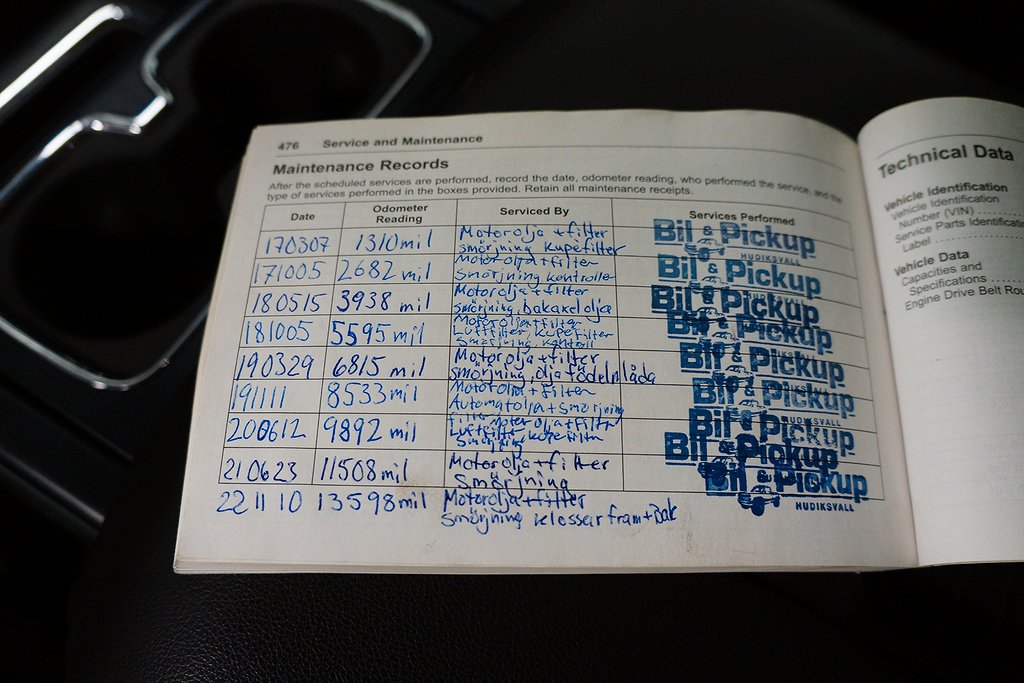 476 Service and Maintenance
Maintenance Records
After the scheduled services are performed, record the date, odometer reading, who performed the service, and the
type of services performed in the boxes provided. Retain all maintenance receipts.
Date Odometer Reading Serviced By Services Performed
170307 1310 mil Motorolja + filter
smörjning kupefilter
Bil & Pickup
HUDIKSVALL
171005 2682 mil Motorolja + filter
Smörjning kontroller
Bil & Pickup
180515 3938 mil Motorolja + filter
Smörjning, bakaxelolja
Bil & Pickup
181005 5595 mil Motorolja + filter
Luftfilter, kupefilter
Smörjning, kontroll
Bil & Pickup
190329 6815 mil Motorolja + filter
smörjning, olja födelnlåda
Bil & Pickup
191111 8533 mil Motorolja + filter
Automatolja + smörjning
Bil & Pickup
HUDIKSVALL
200612 9892 mil motorolja + filter
Luftfilter, kupefilter
Smörjning
Bil & Pickup
210623 11508 mil Motorolja + filter
Smörjning
Bil & Pickup
221110 13598 mil Motorolja + filter
Smörjning klossar fram + Bak
Bil & Pickup
HUDIKSVALL
Technical Data
Vehicle Identification
Vehicle Identification
Number (VIN)
Service Parts Identificatio
Label
Vehicle Data
Capacities and
Specifications
Engine Drive Belt Rou